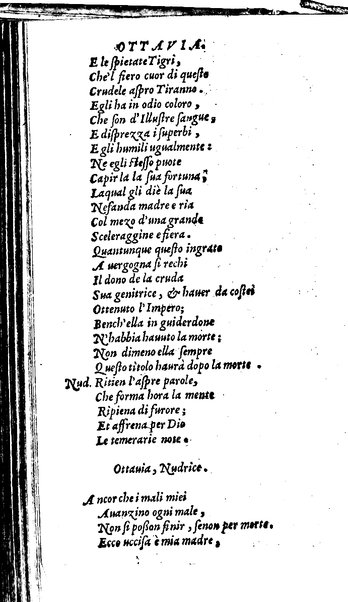 OTTAVIA.
E le spietate Tigri,
Che'l fiero cuor di questo
Crudele aspro Tiranno.
Egli ha in odio coloro,
Che son d'Illustre sangue,
E disprezza i superbi,
E gli humili ugualmente:
Ne egli stesso puote
Capir la la sua fortuna;
Laqual gli diè la sua
Nefanda madre e ria
Col mezo d'una grande
Sceleraggine e fiera.
Quantunque questo ingrato
A vergogna si rechi
Il dono de la cruda
Sua genitrice, & haver da costei
Ottenuto l'Impero;
Bench'ella in guiderdone
N'habbia hauuto la morte;
Non dimeno ella sempre
Questo titolo haurà dopo la morte.
Nud. Ritien l'aspre parole,
Che forma hora la mente
Ripiena di furore;
Et affrena per Dio
Le temerarie note.
Ottauia, Nudrice.
Ancor che i mali miei
Auanzino ogni male,
Non si posson finir, senon per morte.
Ecco uccisa è mia madre,